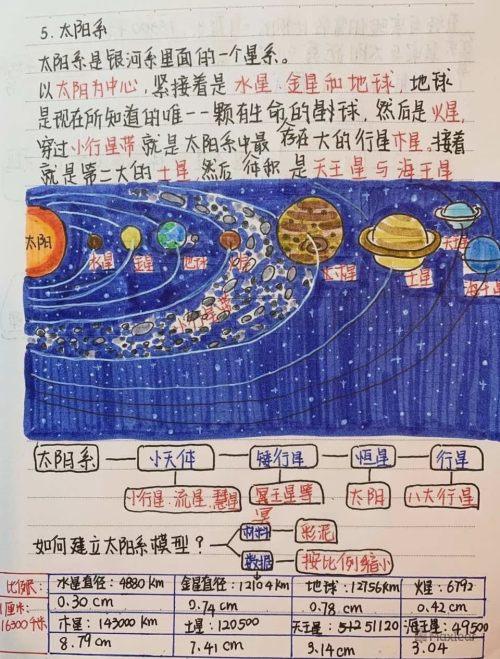 5.太阳系
太阳系是银河系里面的一个星系。
以太阳为中心,紧接着是水星.金星和地球,地球
是现在所知道的唯一一颗有生命的星球,然后是火星,
穿过小行星带就是太阳系中最存在大的行星木星,接着
就是第二大的土星,然后体积是天王星与海王星
太阳
水星 金星 地球 火星
小行星带
大木星
土星
天王星
海王星
太阳系 小天体 矮行星 恒星 行星
小行星.流星.彗星 冥王星等 太阳 八大行星
冥
材料 彩泥
如何建立太阳系模型?
数据 按比例缩小
比例尺: 水星直径:4880km 金星直径:12104km 地球:12756km 火星:6792
1厘米: 0.30cm 0.74cm 0.78cm 0.42cm
16300千米 木星:143000km 土星:120500 天王星:51120 海王星:49500
8.79cm 7.41cm 3.14cm 3.04